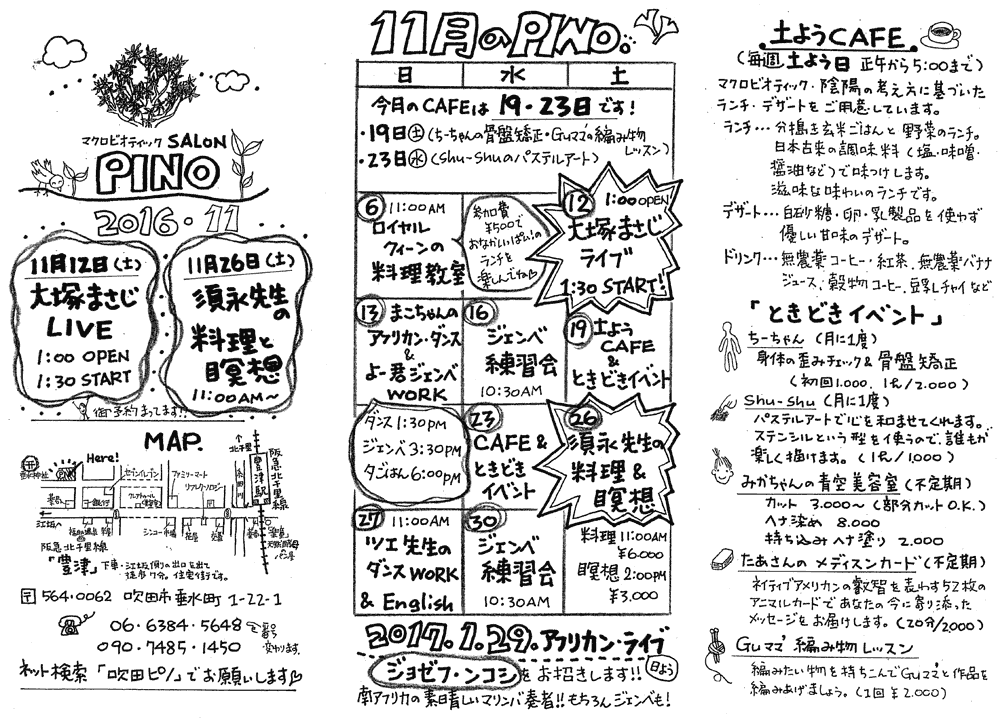 マクロビオティック SALON
PINO
2016・11
11月12日(土)
大塚まさじ
LIVE
1:00 OPEN
1:30 START
11月26日(土)
須永先生の
料理と
瞑想
11:00AM〜
御予約まってます!!
MAP.
Here!
セブンイレブン
ファミリーマート
阪急北千里線
豊津駅
江坂へ
阪急北千里線
「豊津」下車・江坂側の出口を出て
徒歩7分。住宅街です。
〒564-0062 吹田市垂水町 1-22-1
06・6384・5648
090・7485・1450
ネット検索「吹田ピノ」でお願いします
11月のPINO。
日 水 土
今月のCAFEは 19・23日です!
・19日(土)(ちーちゃんの骨盤矯正・Guママの編み物
レッスン)
・23日(水)(Shu-Shuのパステルアート)
6 11:00AM
ロイヤル
クィーンの
料理教室
参加費
¥500で
おなかいっぱい!の
ランチを
楽しんでね
12 1:00 OPEN
大塚まさじ
ライブ
1:30 START!
13 まこちゃんの
アフリカン・ダンス
&
よー君ジェンベ
WORK
16
ジェンベ
練習会
10:30AM
19 土よう
CAFE
&
ときどきイベント
ダンス 1:30PM
ジェンベ 3:30PM
夕ごはん 6:00PM
23
CAFE &
ときどき
イベント
26
須永先生の
料理 &
瞑想
27 11:00AM
ツエ先生の
ダンスWORK
& English
30
ジェンベ
練習会
10:30AM
料理 11:00AM
¥6,000
瞑想 2:00PM
¥3,000
2017.1.29.アフリカン・ライブ
ジョゼフ・ンコシをお招きします!! 日よう
南アフリカの素晴しいマリンバ奏者!!もちろんジェンベも!
土ようCAFE
(毎週 土よう日 正午から5:00まで)
マクロビオティック・陰陽の考え方に基づいた
ランチ・デザートをご用意しています。
ランチ・・・分搗き玄米ごはんと野菜のランチ。
日本古来の調味料(塩・味噌・
醤油など)で味つけします。
滋味な味わいのランチです。
デザート・・・白砂糖・卵・乳製品を使わず
優しい甘味のデザート。
ドリンク・・・無農薬コーヒー・紅茶、無農薬バナナ
ジュース、穀物コーヒー、豆乳チャイなど
「ときどきイベント」
ちーちゃん(月に1度)
身体の歪みチェック&骨盤矯正
(初回1,000、1h/2,000)
Shu-Shu(月に1度)
パステルアートで心を和ませてくれます。
ステンシルという型を使うので、誰もが
楽しく描けます。(1h/1,000)
みかちゃんの青空美容室(不定期)
カット 3,000〜(部分カットO.K.)
ヘナ染め 8,000
持ち込みヘナ塗り 2,000
たあさんのメディスンカード(不定期)
ネイティブアメリカンの叡智を表わす52枚の
アニマルカードであなたの今に寄り添った
メッセージをお届けします。(20分/2,000)
Guママ 編み物レッスン
編みたい物を持ちこんでGuママと作品を
編みあげましょう。(1回¥2,000)